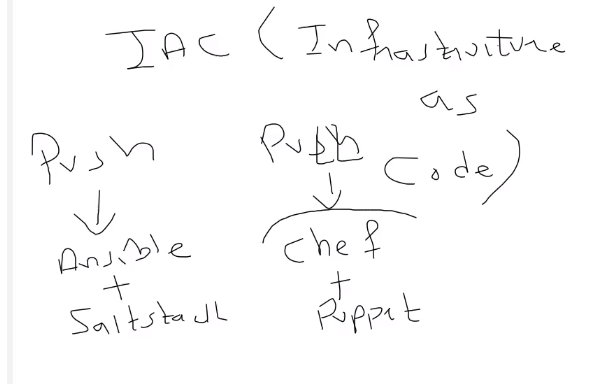 IAC (Infrastructure
as
Code)
Push
↓
Ansible
+
Saltstack
↓
Chef
+
Puppet